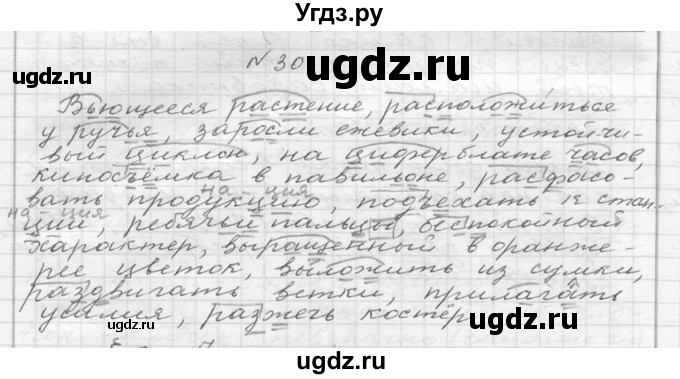 Угдз.ру
№ 30
ugdz.ru
ugdz.ru
Вьющееся растение, расположиться
у ручья, заросли ежевики, устойчи-
вый циклон, на циферблате часов,
киносъёмка в павильоне, расфасо-
на - ция
вать продукцию, подъехать к стан-
на - ция
ции, ребячьи пальцы, беспокойный
характер, выращенный в оранже-
рее цветок, выложить из сумки,
раздвигать ветки, прилагать
усилия, разжечь костёр
ugdz.ru
ugdz.ru
ugdz.ru